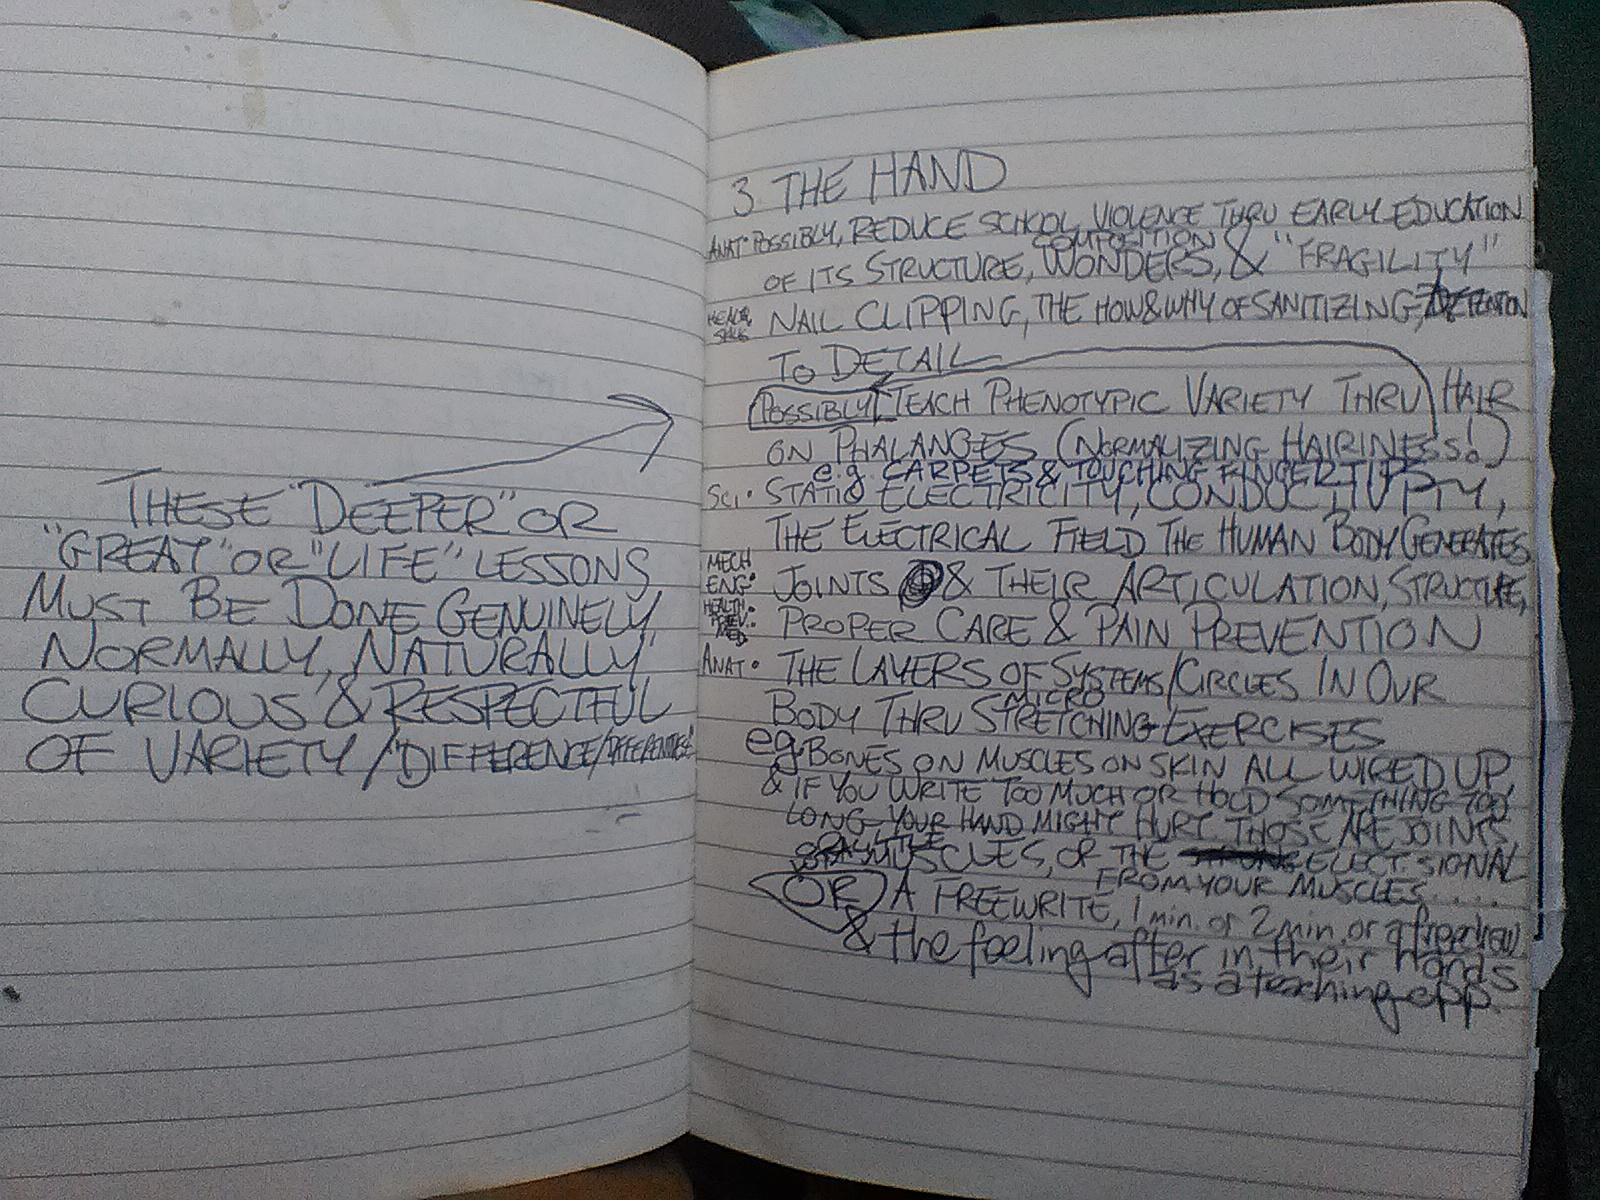 THESE "DEEPER" OR
"GREAT" OR "LIFE" LESSONS
MUST BE DONE GENUINELY,
NORMALLY, NATURALLY,
CURIOUS & RESPECTFUL
OF VARIETY/"DIFFERENCE/
3 THE HAND
ANAT• POSSIBLY, REDUCE SCHOOL VIOLENCE THRU EARLY EDUCATION
COMPOSITION
OF ITS STRUCTURE, WONDERS, & "FRAGILITY"
HEALTH NAIL CLIPPING, THE HOW & WHY OF SANITIZING, ATTENTION
TO DETAIL
POSSIBLY TEACH PHENOTYPIC VARIETY THRU HAIR
ON PHALANGES (NORMALIZING HAIRINESS!)
e.g. CARPETS & TOUCHING FINGER TIPS
SCI• STATIC ELECTRICITY, CONDUCTIVITY,
THE ELECTRICAL FIELD THE HUMAN BODY GENERATES
MECH
ENG• JOINTS & THEIR ARTICULATION, STRUCTURE,
HEALTH
PREV.
MED PROPER CARE & PAIN PREVENTION
ANAT• THE LAYERS OF SYSTEMS/CIRCLES IN OUR
MICRO
BODY THRU STRETCHING EXERCISES
eg BONES ON MUSCLES ON SKIN ALL WIRED UP,
& IF YOU WRITE TOO MUCH OR HOLD SOMETHING TOO
LONG YOUR HAND MIGHT HURT THOSE ARE JOINTS
MUSCLES, OR THE ELECT. SIGNAL
FROM YOUR MUSCLES....
OR A FREEWRITE, 1 min. or 2 min. or a freedraw
& the feeling after in their hands
as a teaching opp.